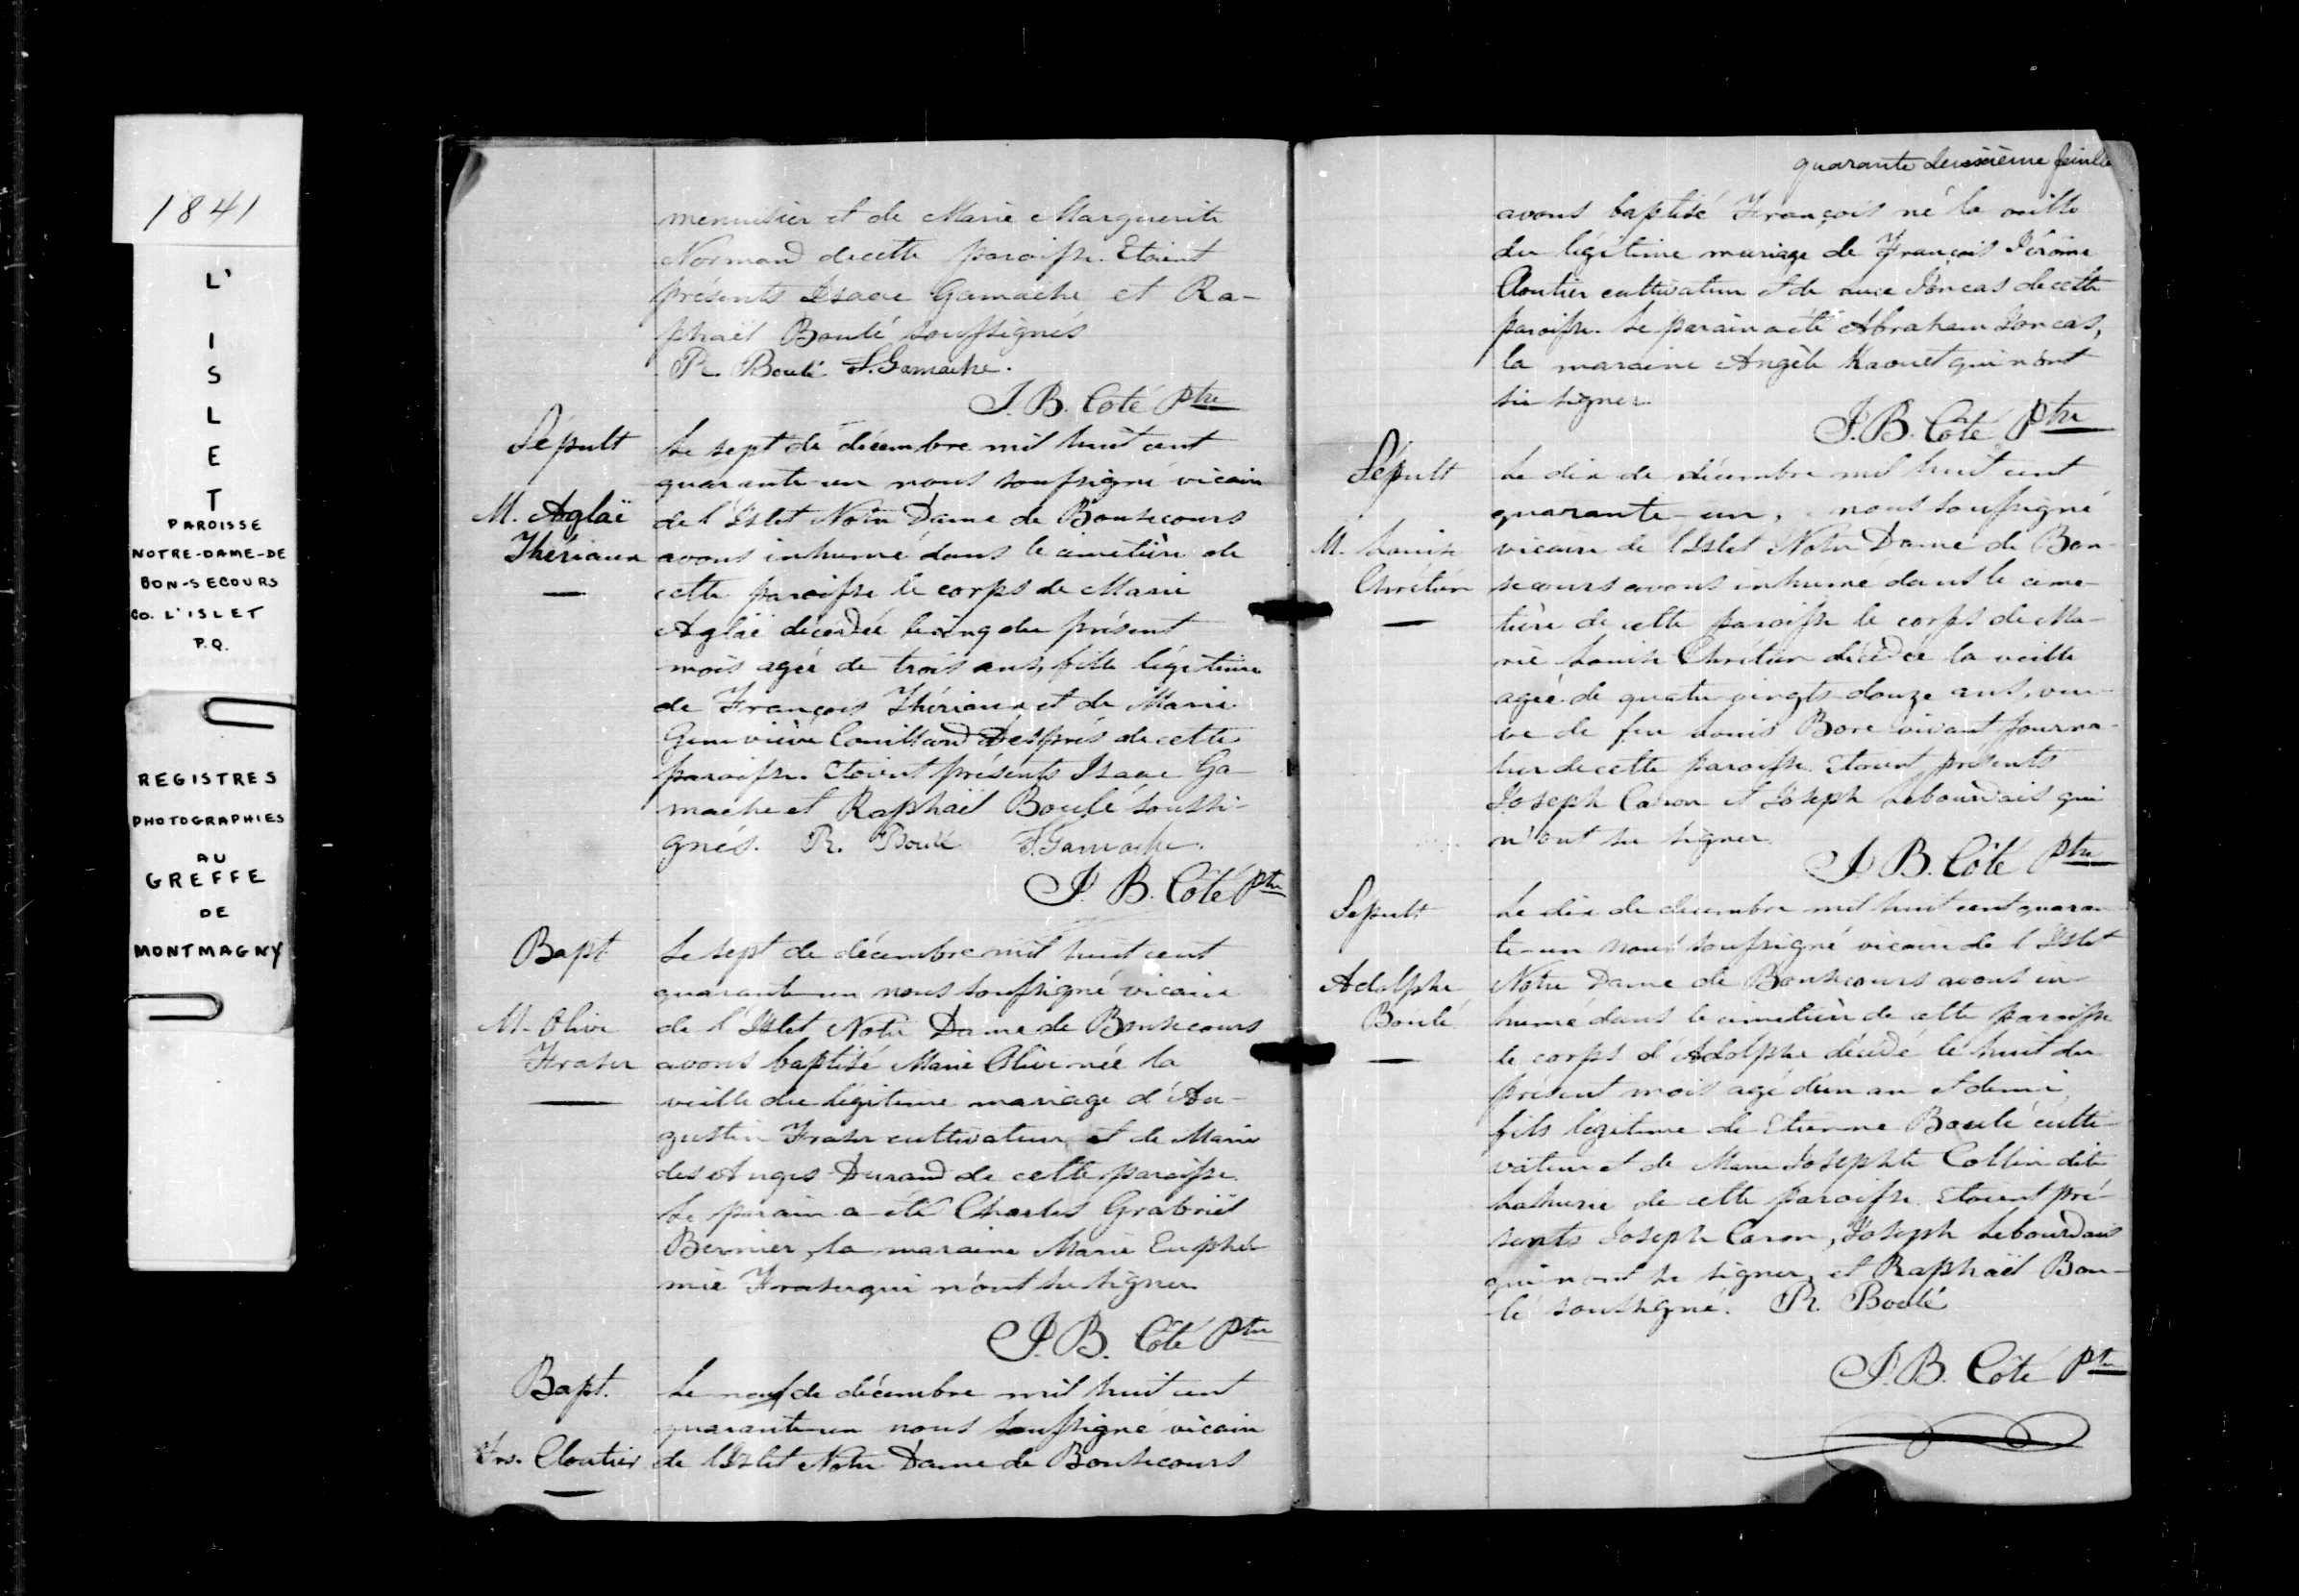 1841
L'
I
S
L
E
T
PAROISSE
NOTRE-DAME-DE
BON-SECOURS
CO. L'ISLET
P.Q.
REGISTRES
PHOTOGRAPHIES
AU
GREFFE
DE
MONTMAGNY
menuisier et de Marie Marguerite
Normand de cette paroisse. Etoient
présents Isaac Gamache et Ra-
phaël Boulé soussignés
R. Boulé I. Gamache.
J. B. Côté Ptre
Sépult
M. Aglaë
Thériaux
Le sept de décembre mil huit cent
quarante-un nous soussigné vicaire
de l'Islet Notre Dame de Bonsecours
avons inhumé dans le cimetière de
cette paroisse le corps de Marie
Aglaë décédée le cinq du présent
mois agée de trois ans, fille légitime
de François Thériaux et de Marie
Geneviève Couillard Després de cette
paroisse. Etoient présents Isaac Ga-
mache et Raphaël Boulé soussi-
gnés. R. Boulé I. Gamache.
J. B. Côté Ptre
Bapt
M. Olive
Fraser
Le sept de décembre mil huit cent
quarante-un nous soussigné vicaire
de l'Islet Notre Dame de Bonsecours
avons baptisé Marie Olive née la
veille du légitime mariage d'Au-
gustin Fraser cultivateur et de Marie
des Anges Durand de cette paroisse.
Le parain a été Charles Grabriël
Bernier, la maraine Marie Euphé-
mie Fraser qui n'ont su signer
J. B. Côté Ptre
Bapt.
Frs. Cloutier
Le neuf de décembre mil huit cent
quarante-un nous soussigné vicaire
de l'Islet Notre Dame de Bonsecours
quarante deuxième feuille
avons baptisé François né la veille
du légitime mariage de François Jérôme
Cloutier cultivateur et de Joncas de cette
paroisse. Le parain a été Abraham Joncas,
la maraine Angèle Kaouet qui n'ont
su signer
J. B. Côté Ptre
Sépult
M. Louise
Chrétien
Le dix de décembre mil huit cent
quarante-un, nous soussigné
vicaire de l'Islet Notre Dame de Bon-
secours avons inhumé dans le cime-
tière de cette paroisse le corps de Ma-
rie Louise Chrétien décédée la veille
agée de quatre vingts-douze ans, veu-
ve de feu Louis Bore vivant journa-
lier de cette paroisse. Etoient présents
Joseph Caron et Joseph Lebourdais qui
n'ont su signer
J. B. Côté Ptre
Sépult
Adolphe
Boulé
Le dix de décembre mil huit cent quaran-
te-un nous soussigné vicaire de l'Islet
Notre Dame de Bonsecours avons in
humé dans le cimetière de cette paroisse
le corps d'Adolphe décédé le huit du
présent mois agé d'un an et demi
fils légitime de Etienne Boulé culti-
vateur et de Marie Josephte Collin dite
de cette paroisse. Etoient pré-
sents Joseph Caron, Joseph Lebourdais
qui n'ont su signer, et Raphaël Bou-
lé soussigné. R. Boulé
J. B. Côté Ptre